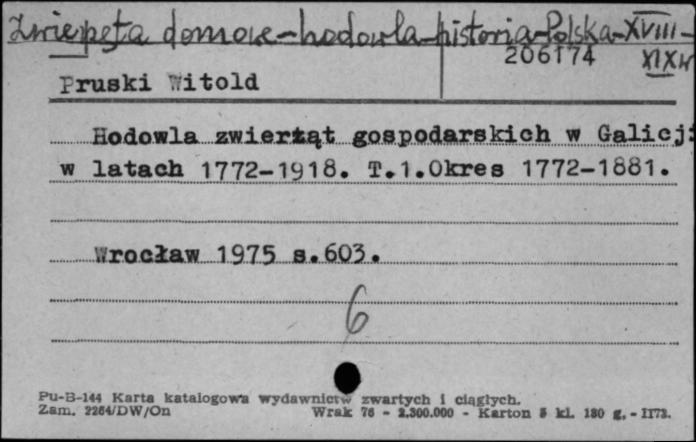 Zwierzęta domowe-hodowla-historia-Polska-XVIII-
XIXw
206174
Pruski Witold
Hodowla zwierząt gospodarskich w Galicji
w latach 1772-1918. T.1.Okres 1772-1881.
Wrocław 1975 s.603.
6
Pu-B-144 Karta katalogowa wydawnictw zwartych i ciągłych.
Zam. 2264/DW/On Wrak 76 - 2.300.000 - Karton 5 kl. 180 g. - II73.